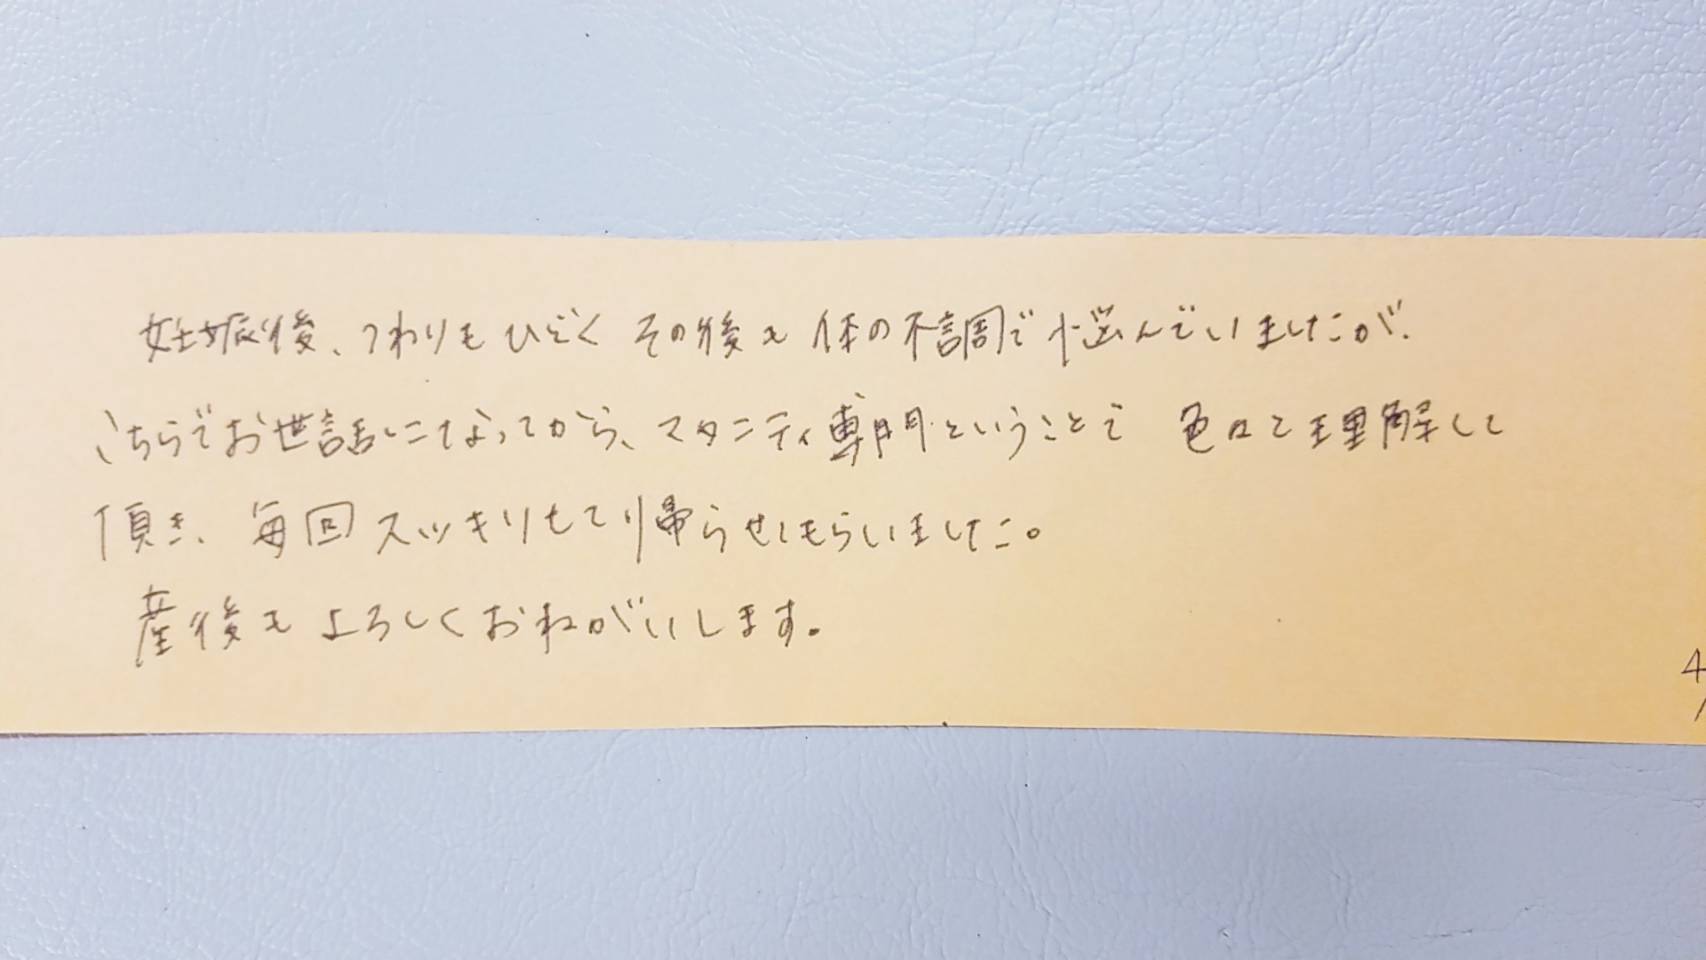 妊娠後、つわりもひどく その後も 体の不調で悩んでいましたが、
こちらでお世話になってから、マタニティ専門ということで 色々と理解して
頂き、毎回スッキリして帰らせてもらいました。
産後も よろしくおねがいします。
4/